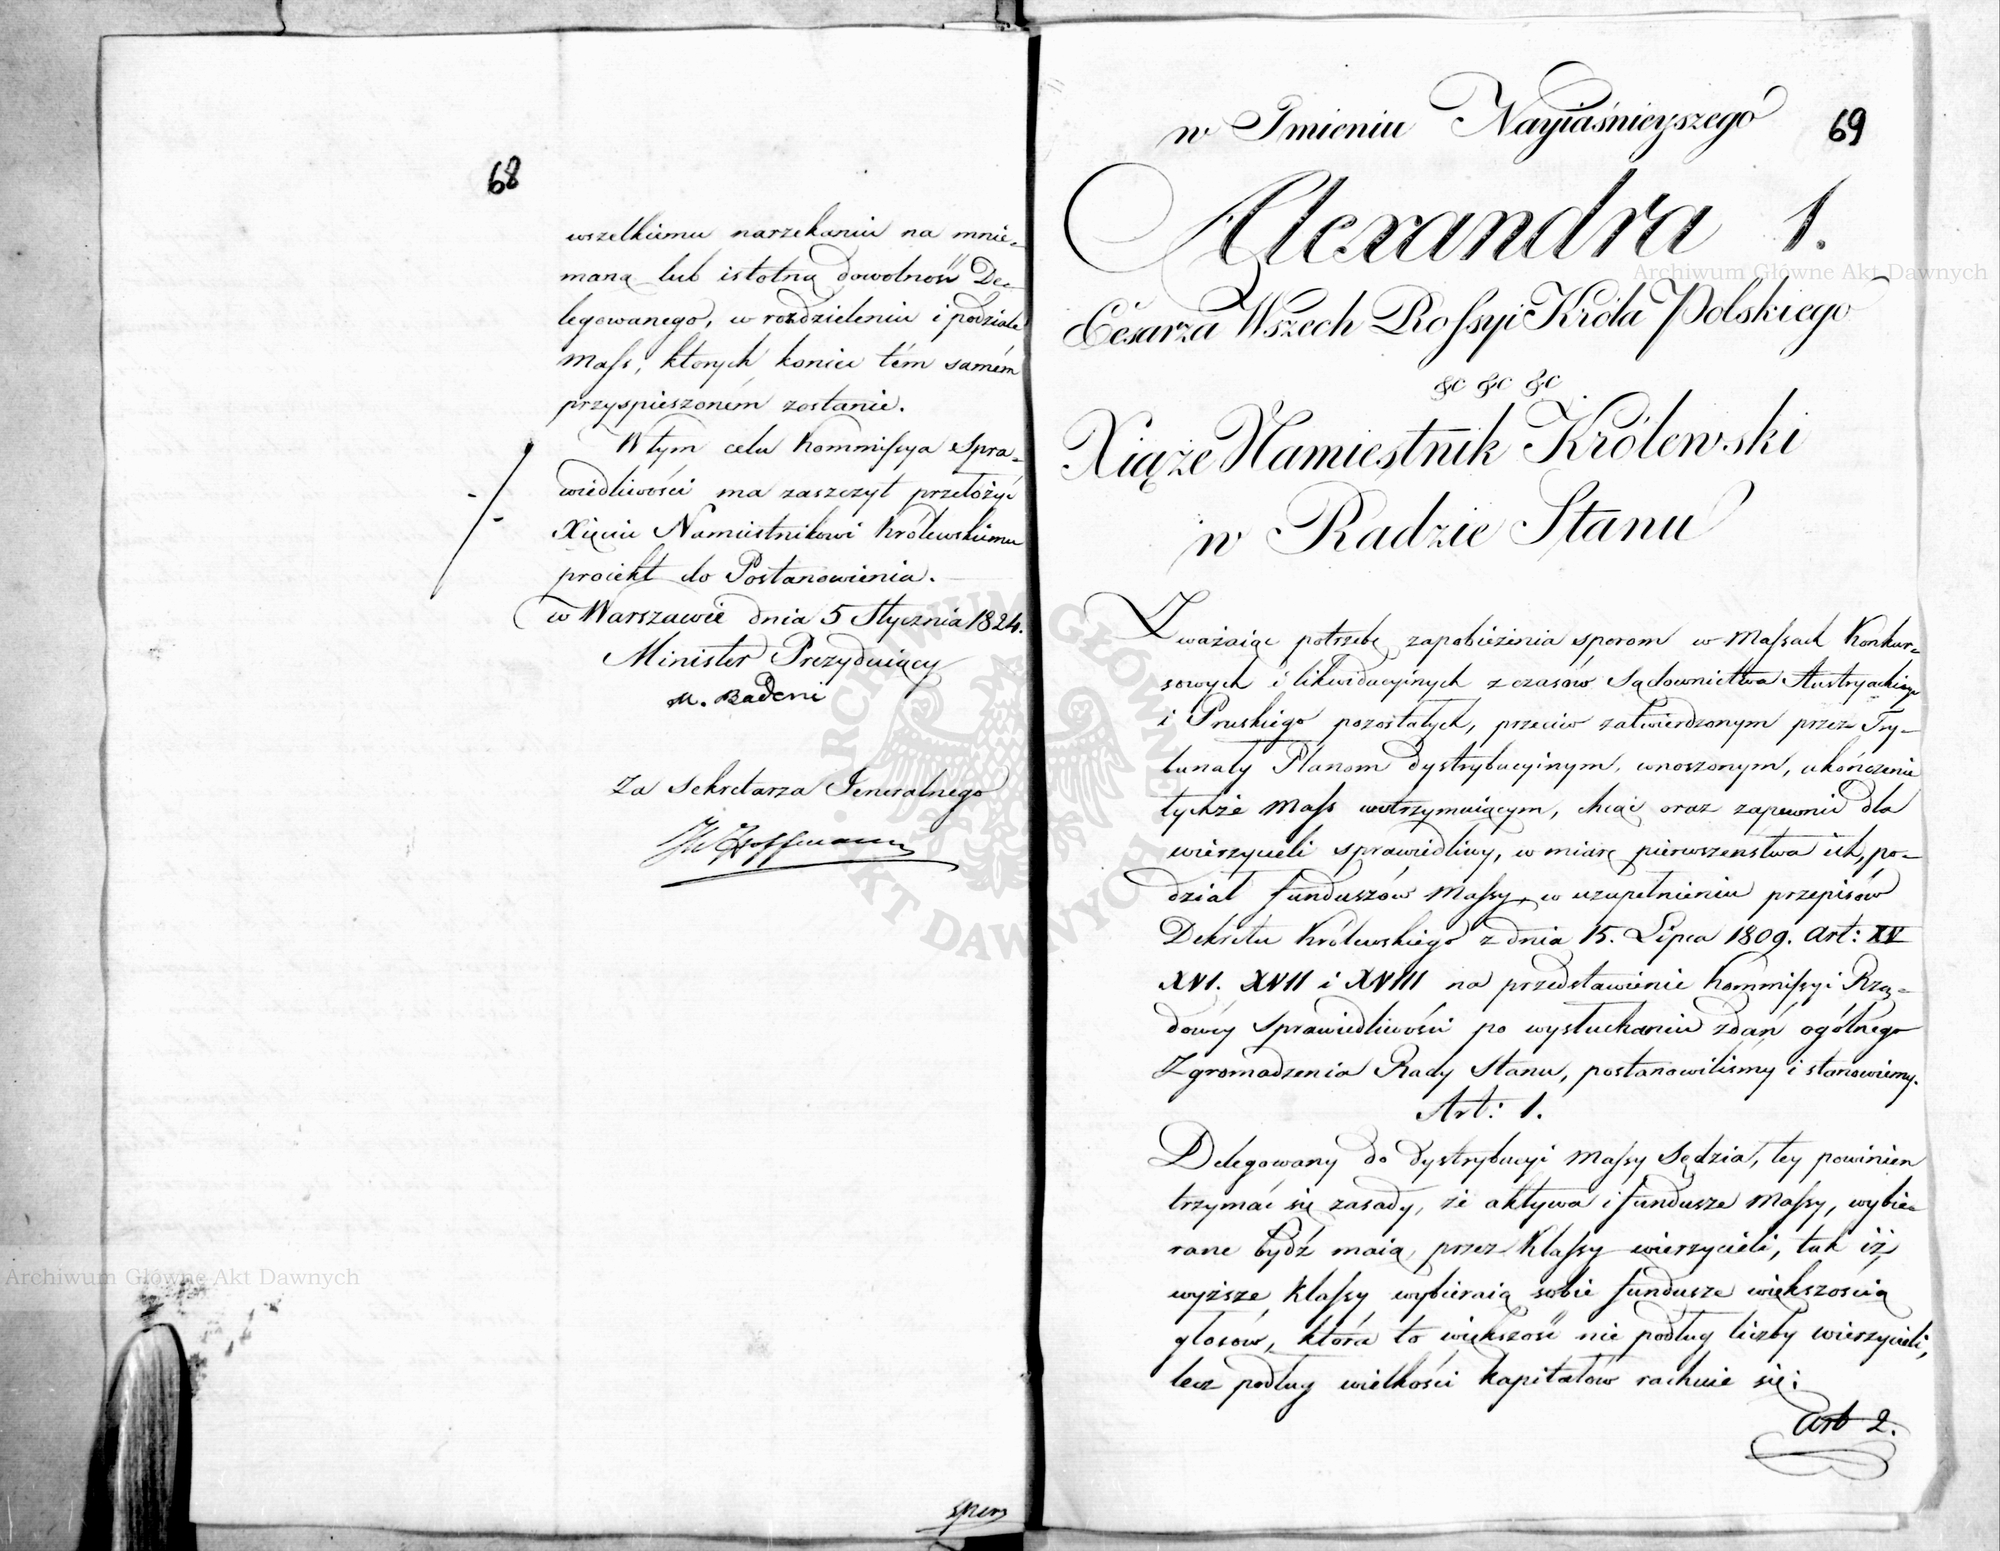 68
wszelkiemu narzekaniu na mnie=
maną lub istotną dowolność De=
legowanego, w rozdzieleniu i podziale
Mass, których koniec tém samém
przyspieszoném zostanie.
W tym celu Kommissya Spra=
wiedliwości ma zaszczyt przełożyć
Xięciu Namiestnikowi Królewskiemu
proiekt do Postanowienia.
w Warszawie dnia 5 Stycznia 1824.
Minister Prezyduiący
M. Badeni
Za Sekretarza Jeneralnego
Hoffmann
69
w Imieniu Nayiaśnieyszego
Alexandra 1.
Cesarza Wszech Rossyi Króla Polskiego
&c &c &c
Xiąże Namiestnik Królewski
w Radzie Stanu
Zważaiąc potrzebę zapobieżenia sporom w Massach Konkur=
sowych i likwidacyinych z czasów Sądownictwa Austryackiego
i Pruskiego pozostałych, przeciw zatwierdzonym przez Try=
bunały Planom dystrybucyinym, wnoszonym, ukończenie
tychże Mass wstrzymuiącym, chcąc oraz zapewnić dla
wierzycieli sprawiedliwy, w miarę pierwszeństwa ich, po=
dział funduszów Massy, w uzupełnieniu przepisów
Dekretu Królewskiego z dnia 15. Lipca 1809. Art: XV
XVI. XVII i XVIII na przedstawienie Kommissyi Rzą=
dowéy Sprawiedliwości po wysłuchaniu zdań ogólnego
Zgromadzenia Rady Stanu, postanowiliśmy i stanowiemy.
Art: 1.
Delegowany do dystrybucyi Massy Sędzia, tey powinien
trzymać się zasady, że aktywa i fundusze Massy, wybie=
rane bydź maią przez Klassy wierzycieli, tak iż
wyższe Klassy wybieraią sobie fundusze większością
głosów, która to większość nie podług liczby wierzycieli,
lecz podług wielkości kapitałów rachuie się:
Art 2.
Archiwum Główne Akt Dawnych
Archiwum Główne Akt Dawnych
ARCHIWUM GŁÓWNE AKT DAWNYCH